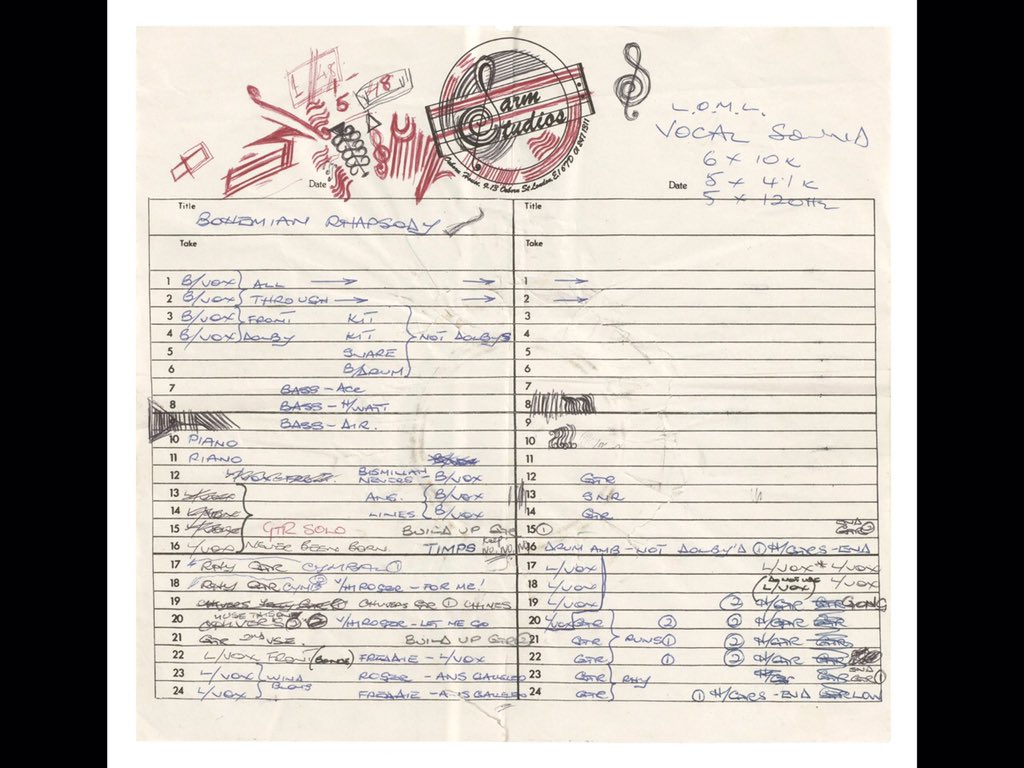 L.O.M.L.
VOCAL SOUND
6 + 10K
5 + 4.1K
5 + 120Hz
Sarm
Studios
Osborn House, 9-13 Osborn St London, E1 6TD 01 247 1311
Date
Date
Title
Title
BOHEMIAN RHAPSODY
Take
Take
1 B/VOX ALL 1
2 B/VOX THROUGH 2
3 B/VOX FRONT KIT 3
4 B/VOX DOLBY KIT NOT DOLBY'S 4
5 SNARE 5
6 B/DRUM 6
7 BASS - ACC 7
8 BASS - H/WATT 8
BASS - AIR. 9
10 PIANO 10
11 PIANO B/VOX 11
12 BISMILLAH NEVERS - B/VOX 12 GTR
13 ANS. B/VOX 13 SNR
14 LINES B/VOX 14 GTR
15 GTR SOLO BUILD UP GTR ① 15 END
16 L/VOX NEVER BEEN BORN TIMPS Keep NO. NO. NO 16 DRUM AMB - NOT DOLBY'D ① H/GTRS - END
17 RHY GTR CYMBAL ① 17 L/VOX L/VOX * L/VOX
18 RHY GTR CYMB Y/H ROGER - FOR ME! 18 L/VOX (DO NOT USE L/VOX) L/VOX
19 CHIMES 19 L/VOX ② H/GTR GTR GONG
20 Y/H ROGER - LET ME GO 20 GTR ② ② H/GTR GTR
21 GTR 2ND VSE. BUILD UP GTR ② 21 GTR RUNS ① ② H/GTR GTR
22 L/VOX FRONT FREDDIE - L/VOX 22 GTR ① ② H/GTR GTR
23 L/VOX WIND ROGER - ANS GALILEO 23 GTR RHY END GTR ①
24 L/VOX BLOWS FREDDIE - ANS GALILEO 24 GTR ① H/GTRS - END GTR LOW